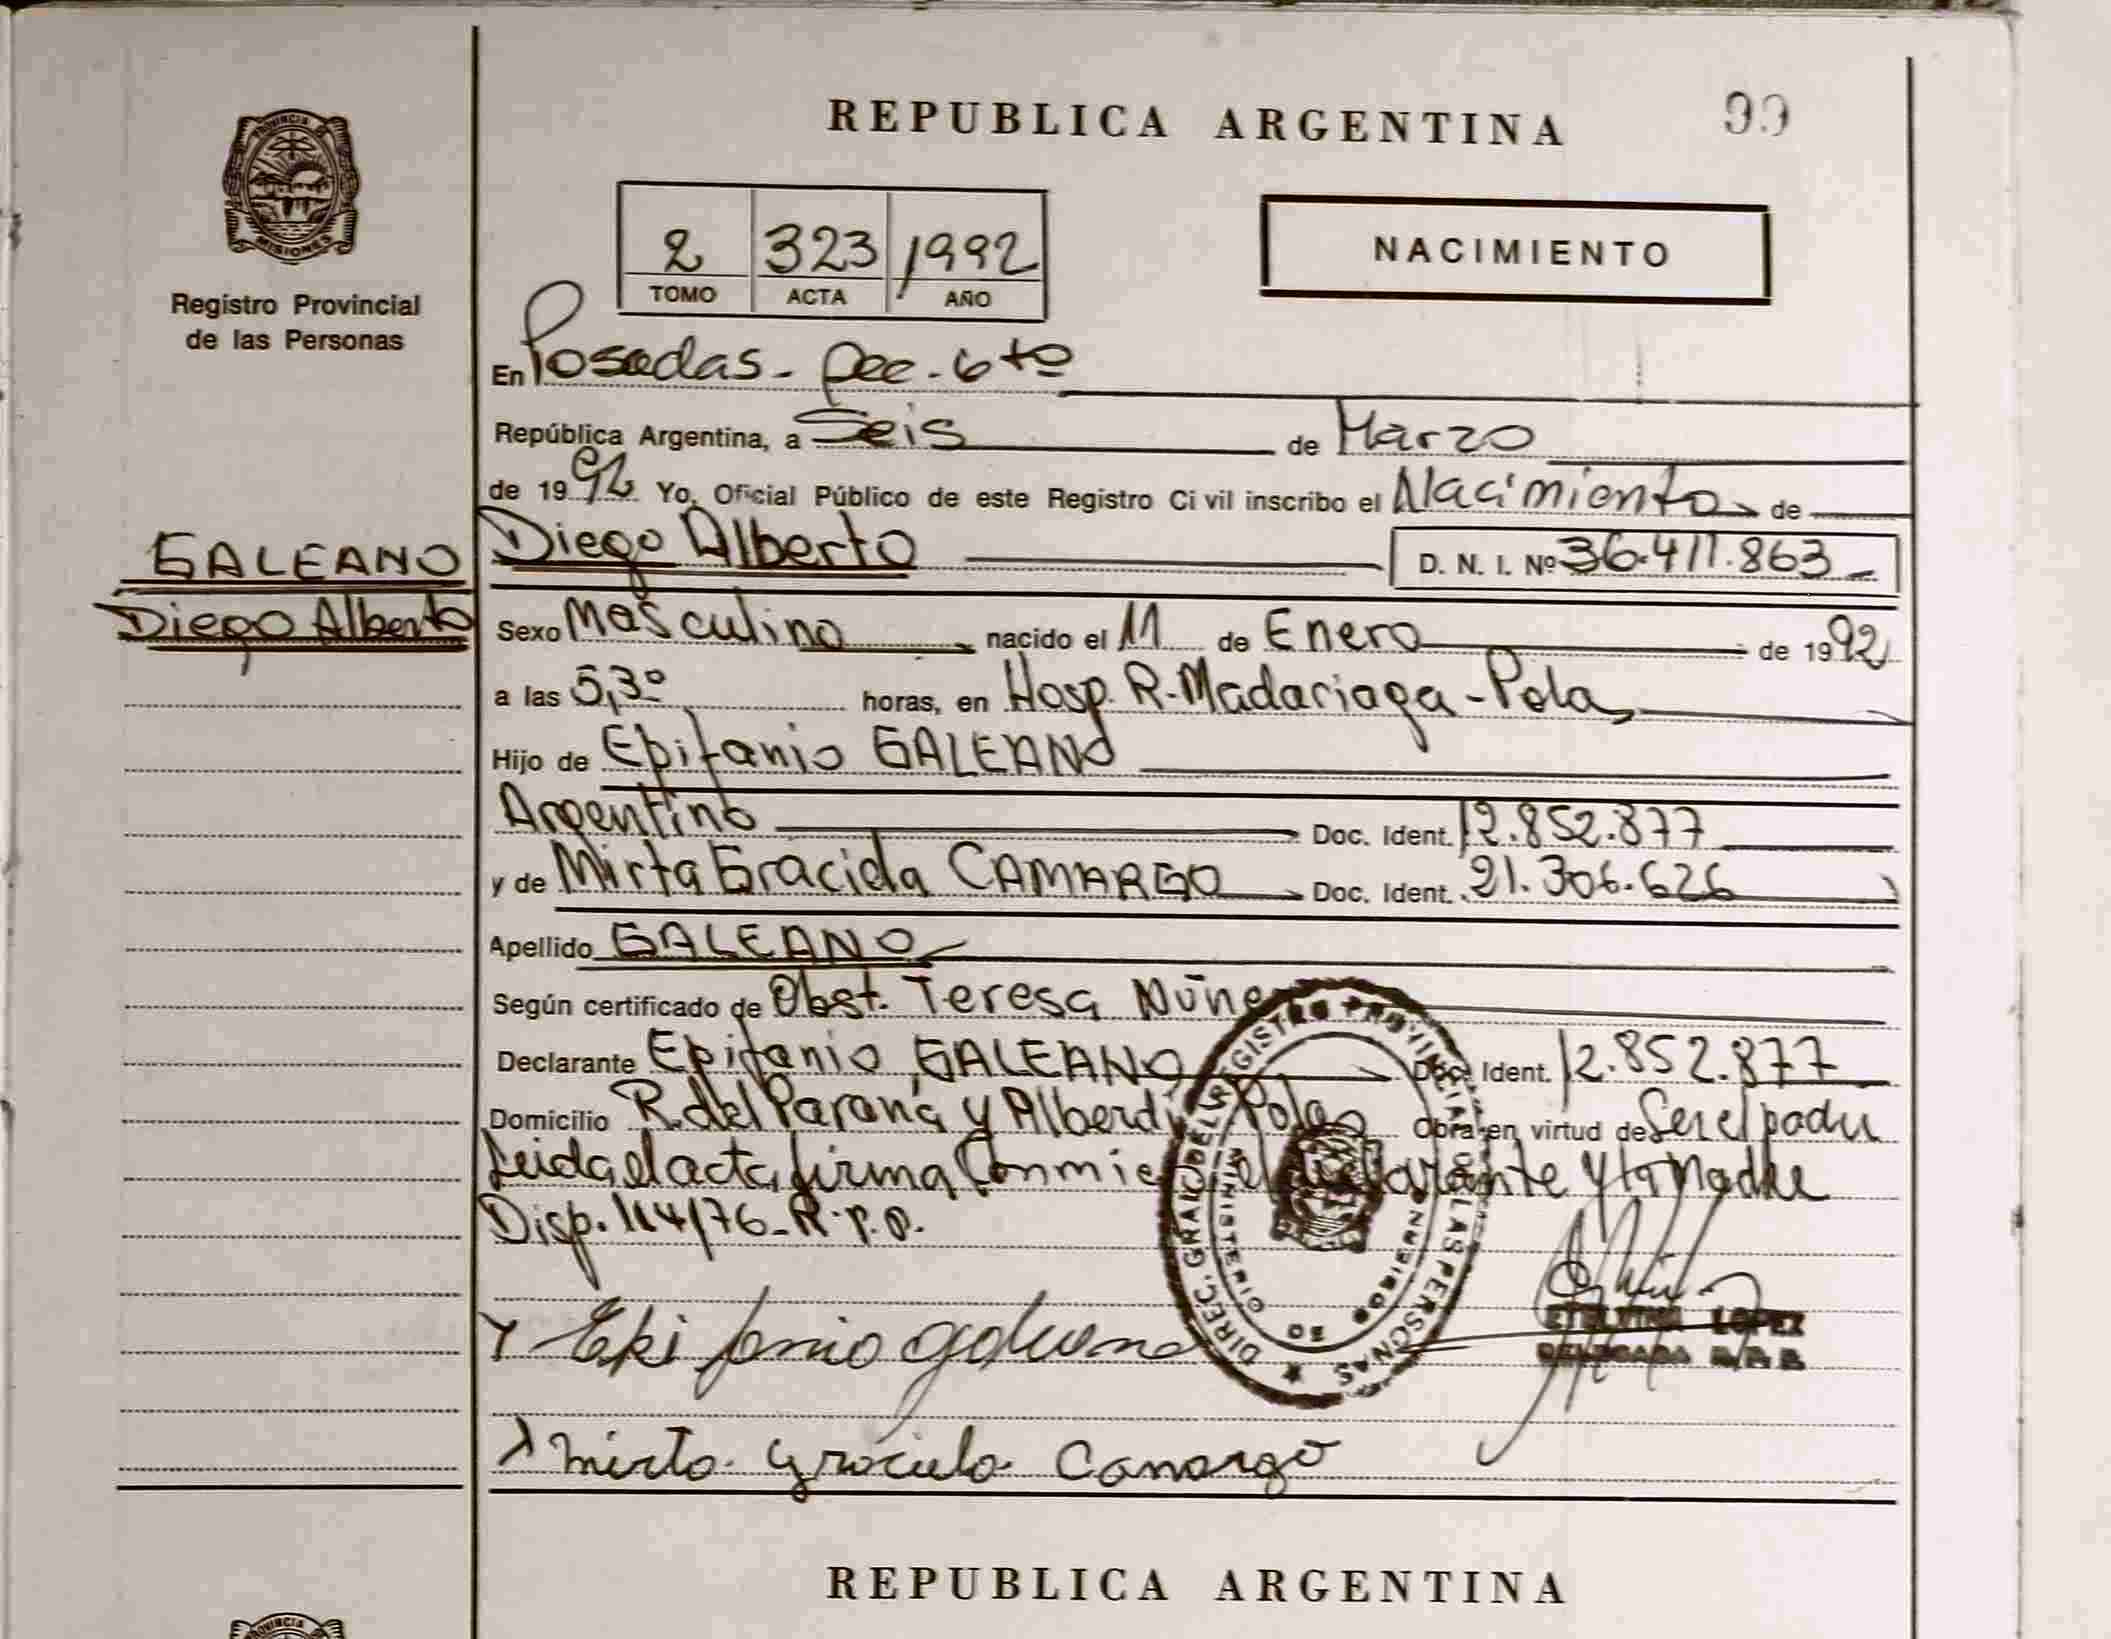 REPUBLICA ARGENTINA
99
PROVINCIA DE
MISIONES
Registro Provincial
de las Personas
2 323 1992
TOMO ACTA AÑO
NACIMIENTO
En Posadas - Dec. 6to
República Argentina, a Seis de Marzo
de 1992 Yo, Oficial Público de este Registro Civil inscribo el Nacimiento de
GALEANO
Diego Alberto
Diego Alberto D. N. I. Nº 36.411.863
Sexo Masculino nacido el 11 de Enero de 1992
a las 5,30 horas, en Hosp. R. Madariaga - Pdas
Hijo de Epifanio GALEANO
Argentino Doc. Ident. 12.852.877
y de Mirta Graciela CAMARGO Doc. Ident. 21.306.626
Apellido GALEANO
Según certificado de Obst. Teresa Núñe
Declarante Epifanio GALEANO Doc. Ident. 12.852.877
Domicilio R. del Paraná y Alberdi Pdas Obra en virtud de Ser el padre
Leida el acta, firma Conmigo el declarante y la Madre
Disp. 114/76_R.p.p.
DIREC. GRAL. DEL REGISTRO PROVINCIAL DE LAS PERSONAS
Epifanio galeano
ETELVINA LOPEZ
DELEGADA
Mirta Graciela Camargo
REPUBLICA ARGENTINA
PROVINCIA